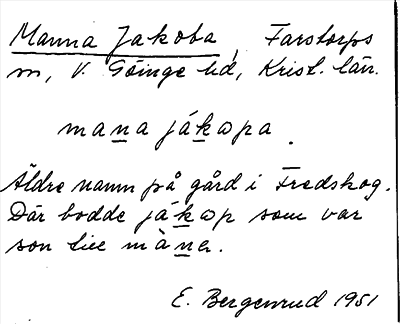 Manna Jakoba, Farstorps
sn, V. Göinge hd, Krist. län.
mana jákɷpa.
Äldre namn på gård i Fredskog.
Där bodde jákɷp som var
son till màna.
E. Bergenrud 1951